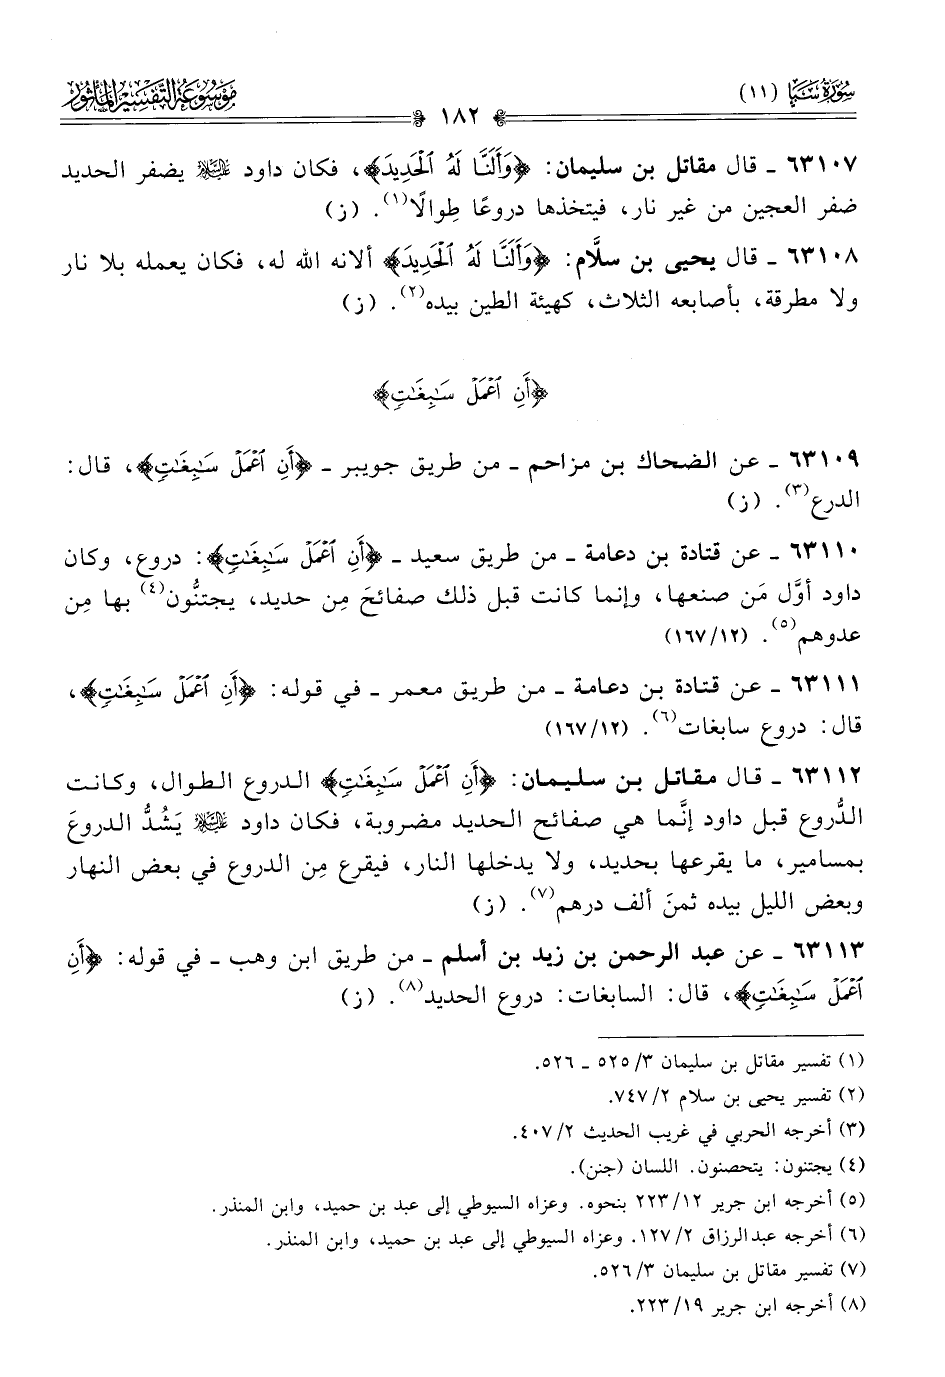 سُورَةُ سَبَإٍ (١١)
١٨٢
مَوْسُوعَة التَّفْسِيرِ المَأْثُورِ
٦٣١٠٧ ـ قال مقاتل بن سليمان: ﴿وَأَلَنَّا لَهُ ٱلْحَدِيدَ﴾، فكان داود عليه السلام يضفر الحديد
ضفر العجين من غير نار، فيتخذها دروعًا طِوالًا(١). (ز)
٦٣١٠٨ ـ قال يحيى بن سلَّام: ﴿وَأَلَنَّا لَهُ ٱلْحَدِيدَ﴾ ألانه الله له، فكان يعمله بلا نار
ولا مطرقة، بأصابعه الثلاث، كهيئة الطين بيده(٢). (ز)
﴿أَنِ ٱعْمَلْ سَٰبِغَٰتٍ﴾
٦٣١٠٩ ـ عن الضحاك بن مزاحم ـ من طريق جويبر ـ ﴿أَنِ ٱعْمَلْ سَٰبِغَٰتٍ﴾، قال:
الدرع(٣). (ز)
٦٣١١٠ ـ عن قتادة بن دعامة ـ من طريق سعيد ـ ﴿أَنِ ٱعْمَلْ سَٰبِغَٰتٍ﴾: دروع، وكان
داود أوَّل مَن صنعها، وإنما كانت قبل ذلك صفائحَ مِن حديد، يجتنُّون(٤) بها مِن
عدوهم(٥). (١٦٧/١٢)
٦٣١١١ ـ عن قتادة بن دعامة ـ من طريق معمر ـ في قوله: ﴿أَنِ ٱعْمَلْ سَٰبِغَٰتٍ﴾،
قال: دروع سابغات(٦). (١٦٧/١٢)
٦٣١١٢ ـ قال مقاتل بن سليمان: ﴿أَنِ ٱعْمَلْ سَٰبِغَٰتٍ﴾ الدروع الطوال، وكانت
الدُّروع قبل داود إنَّما هي صفائح الحديد مضروبة، فكان داود عليه السلام يَشُدُّ الدروعَ
بمسامير، ما يقرعها بحديد، ولا يدخلها النار، فيقرع مِن الدروع في بعض النهار
وبعض الليل بيده ثمنَ ألف درهم(٧). (ز)
٦٣١١٣ ـ عن عبد الرحمن بن زيد بن أسلم ـ من طريق ابن وهب ـ في قوله: ﴿أَنِ
ٱعْمَلْ سَٰبِغَٰتٍ﴾، قال: السابغات: دروع الحديد(٨). (ز)
(١) تفسير مقاتل بن سليمان ٣/ ٥٢٥ ـ ٥٢٦.
(٢) تفسير يحيى بن سلام ٢/ ٧٤٧.
(٣) أخرجه الحربي في غريب الحديث ٢/ ٤٠٧.
(٤) يجتنون: يتحصنون. اللسان (جنن).
(٥) أخرجه ابن جرير ١٢/ ٢٢٣ بنحوه. وعزاه السيوطي إلى عبد بن حميد، وابن المنذر.
(٦) أخرجه عبدالرزاق ٢/ ١٢٧. وعزاه السيوطي إلى عبد بن حميد، وابن المنذر.
(٧) تفسير مقاتل بن سليمان ٣/ ٥٢٦.
(٨) أخرجه ابن جرير ١٩/ ٢٢٣.